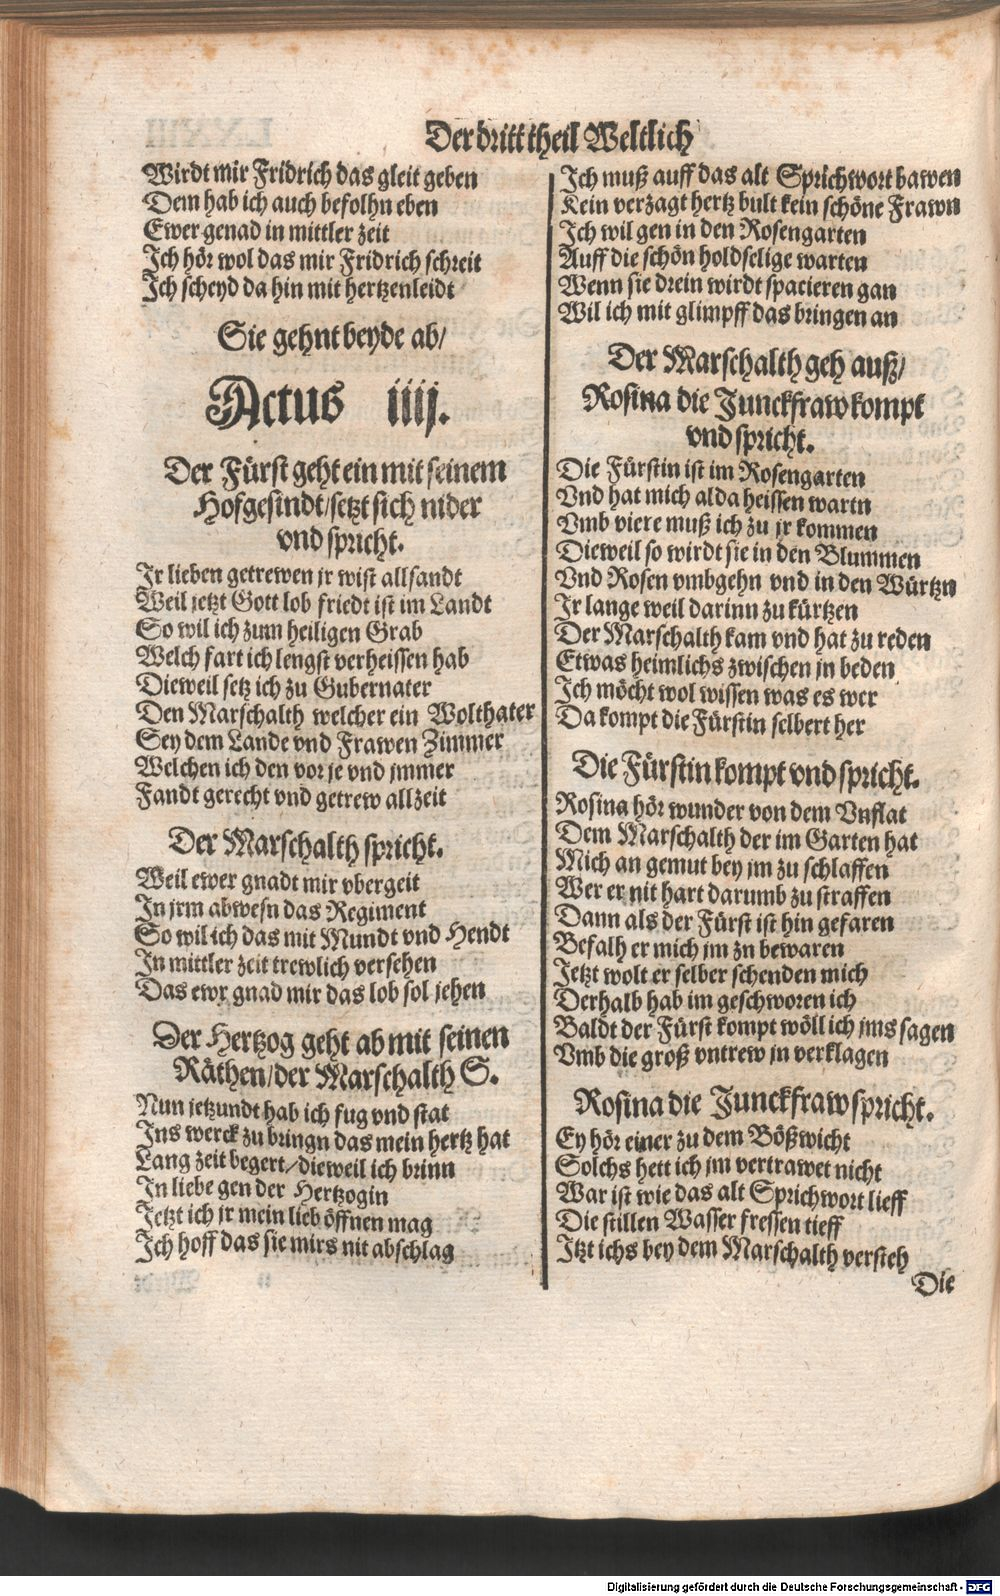 Der dritt theil Weltlich
Wirdt mir Fridrich das gleit geben
Dem hab ich auch befolhn eben
Ewer genad in mittler zeit
Ich hör wol das mir Fridrich schreit
Ich scheyd da hin mit hertzenleidt
Sie gehnt beyde ab/
Actus iiij.
Der Fürst geht ein mit seinem
Hofgesindt/setzt sich nider
vnd spricht.
Ir lieben getrewen jr wist allsandt
Weil jetzt Gott lob friedt ist im Landt
So wil ich zum heiligen Grab
Welch fart ich lengst verheissen hab
Dieweil setz ich zu Gubernater
Den Marschalth welcher ein Wolthater
Sey dem Lande vnd Frawen Zimmer
Welchen ich den vor je vnd jmmer
Fandt gerecht vnd getrew allzeit
Der Marschalth spricht.
Weil ewer gnadt mir vbergeit
In jrm abwesn das Regiment
So wil ich das mit Mundt vnd Hendt
In mittler zeit trewlich versehen
Das ewr gnad mir das lob sol jehen
Der Hertzog geht ab mit seinen
Räthen/der Marschalth S.
Nun jetzundt hab ich fug vnd stat
Ins werck zu bringn das mein hertz hat
Lang zeit begert/dieweil ich brinn
In liebe gen der Hertzogin
Jetzt ich jr mein lieb öffnen mag
Ich hoff das sie mirs nit abschlag
Ich muß auff das alt Sprichwort bawen
Kein verzagt hertz bult kein schöne Frawn
Ich wil gen in den Rosengarten
Auff die schön holdselige warten
Wenn sie drein wirdt spacieren gan
Wil ich mit glimpff das bringen an
Der Marschalth geh auß/
Rosina die Junckfraw kompt
vnd spricht.
Die Fürstin ist im Rosengarten
Vnd hat mich alda heissen wartn
Vmb viere muß ich zu jr kommen
Dieweil so wirdt sie in den Blummen
Vnd Rosen vmbgehn vnd in den Würtzn
Ir lange weil darinn zu kürtzen
Der Marschalth kam vnd hat zu reden
Etwas heimlichs zwischen jn beden
Ich möcht wol wissen was es wer
Da kompt die Fürstin selbert her
Die Fürstin kompt vnd spricht.
Rosina hör wunder von dem Vnflat
Dem Marschalth der im Garten hat
Mich an gemut bey jm zu schlaffen
Wer er nit hart darumb zu straffen
Dann als der Fürst ist hin gefaren
Befalh er mich jm zn bewaren
Jetzt wolt er selber schenden mich
Derhalb hab im geschworen ich
Baldt der Fürst kompt wöll ich jms sagen
Vmb die groß vntrew jn verklagen
Rosina die Junckfraw spricht.
Ey hör einer zu dem Bößwicht
Solchs hett ich jm vertrawet nicht
War ist wie das alt Sprichwort lieff
Die stillen Wasser fressen tieff
Itzt ichs bey dem Marschalth versteh
Die
Digitalisierung gefördert durch die Deutsche Forschungsgemeinschaft - DFG